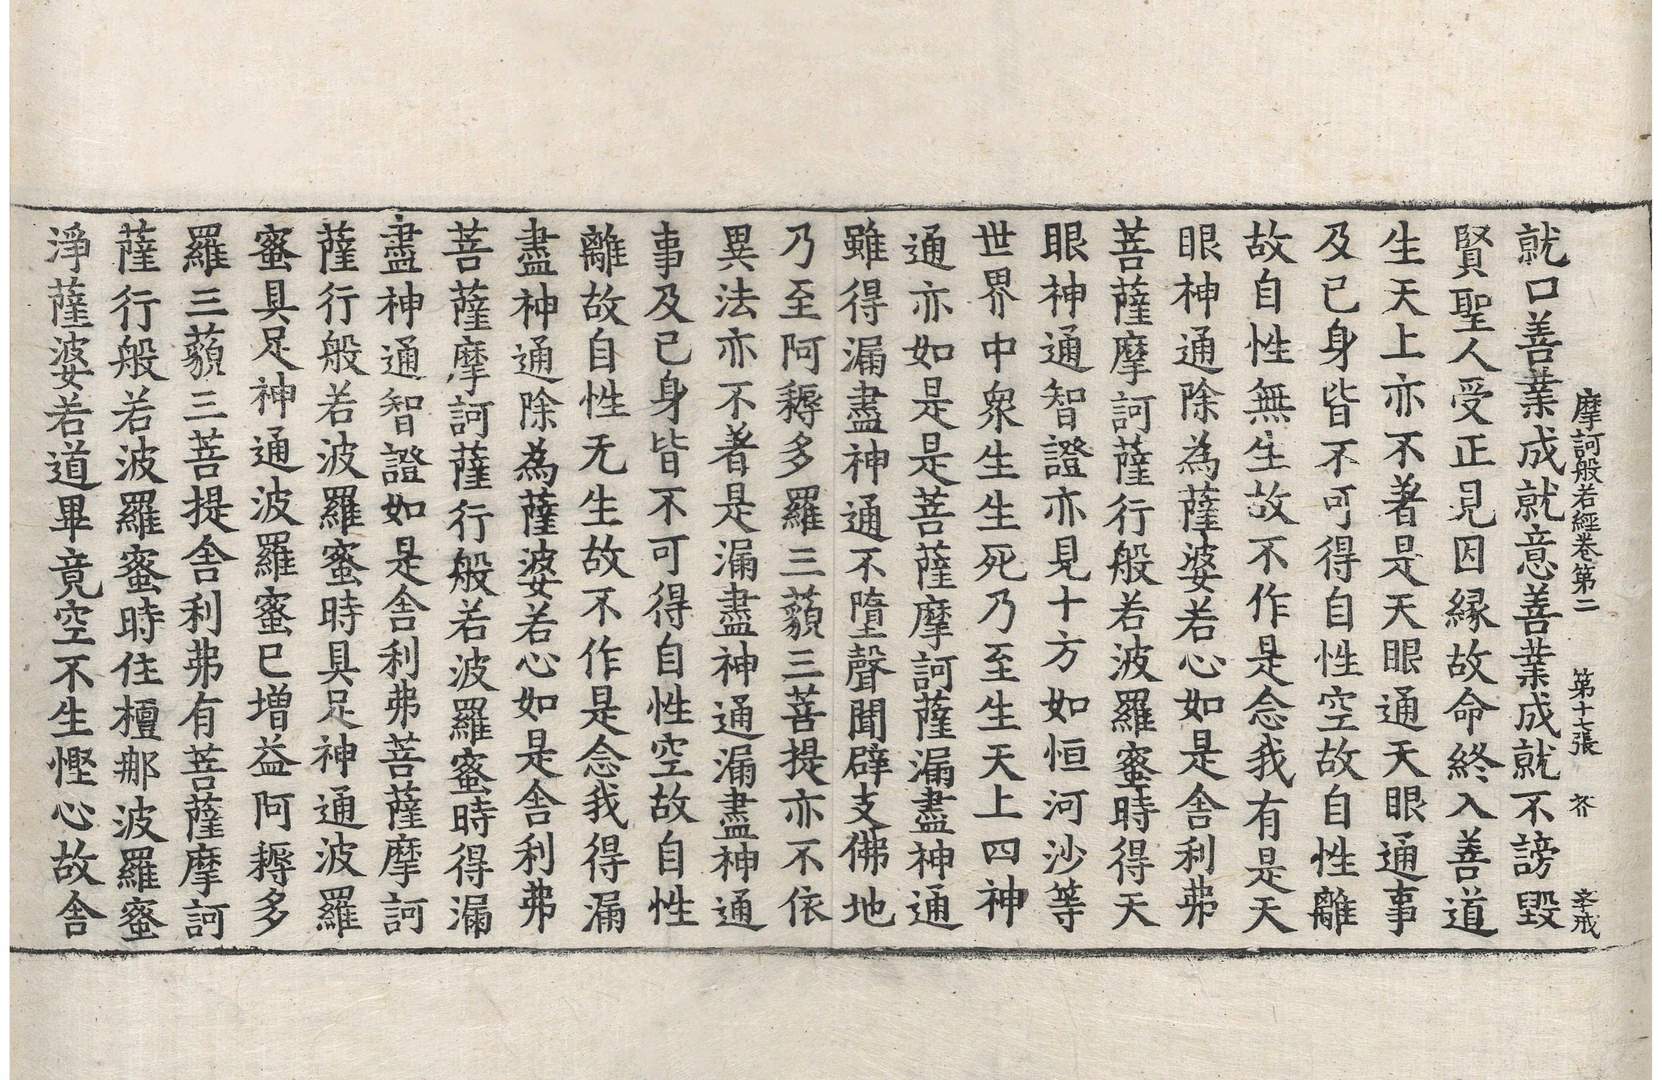 摩訶般若經卷第二 第十七張 芥 孝戒
就口善業成就意善業成就不謗毀
賢聖人受正見因緣故命終入善道
生天上亦不著是天眼通天眼通事
及已身皆不可得自性空故自性離
故自性無生故不作是念我有是天
眼神通除為薩婆若心如是舍利弗
菩薩摩訶薩行般若波羅蜜時得天
眼神通智證亦見十方如恒河沙等
世界中眾生生死乃至生天上四神
通亦如是是菩薩摩訶薩漏盡神通
雖得漏盡神通不墮聲聞辟支佛地
乃至阿耨多羅三藐三菩提亦不依
異法亦不著是漏盡神通漏盡神通
事及已身皆不可得自性空故自性
離故自性无生故不作是念我得漏
盡神通除為薩婆若心如是舍利弗
菩薩摩訶薩行般若波羅蜜時得漏
盡神通智證如是舍利弗菩薩摩訶
薩行般若波羅蜜時具足神通波羅
蜜具足神通波羅蜜已增益阿耨多
羅三藐三菩提舍利弗有菩薩摩訶
薩行般若波羅蜜時住檀那波羅蜜
淨薩婆若道畢竟空不生慳心故舍